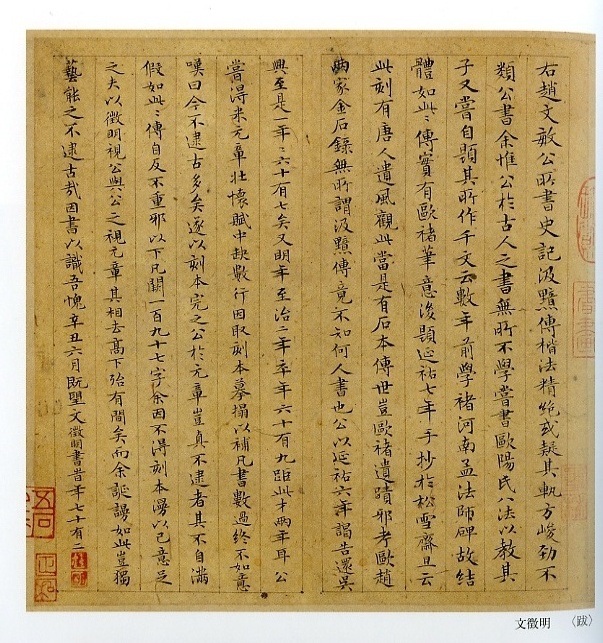 右趙文敏公所書史記汲黯傳楷法精絕或疑其軌方峻勁不
類公書余惟公於古人之書無所不學嘗書歐陽氏八法以教其
子又嘗自題其所作千文云數年前學褚河南孟法師碑故結
體如此此傳實有歐褚筆意後題延祐七年手抄於松雪齋且云
此刻有唐人遺風觀此當是有石本傳世豈歐褚遺蹟邪考歐趙
兩家金石錄無所謂汲黯傳竟不知何人書也公以延祐六年謁告還吳
興至是一年年六十有七矣又明年至治二年卒年六十有九距此才兩年耳公
嘗得米元章壯懷賦中缺數行因取刻本摹搨以補凡書數過終不如意
嘆曰今不逮古多矣遂以刻本完之公於元章豈真不逮者其不自滿
假如此此傳自反不重邪以下凡闕一百九十七字余因不得刻本漫以己意足
之夫以徵明視公與公之視元章其相去高下殆有間矣而余誕謾如此豈獨
藝能之不逮古哉因書以識吾愧辛丑六月既望文徵明書昔年七十有二
文徵明 〈跋〉